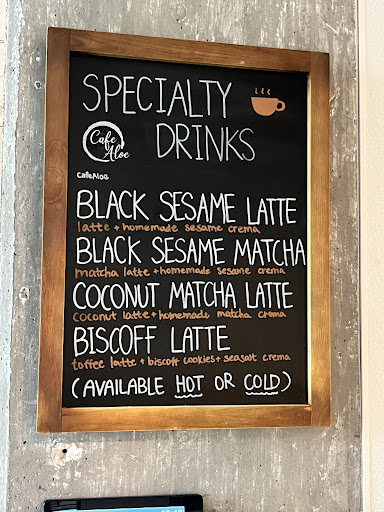 SPECIALTY
DRINKS
Cafe
Aloe
CAFEALOE
BLACK SESAME LATTE
latte + homemade sesame crema
BLACK SESAME MATCHA
matcha latte + homemade sesame crema
COCONUT MATCHA LATTE
coconut latte + homemade matcha crema
BISCOFF LATTE
toffee latte + biscoff cookies + seasalt crema
(AVAILABLE HOT OR COLD)